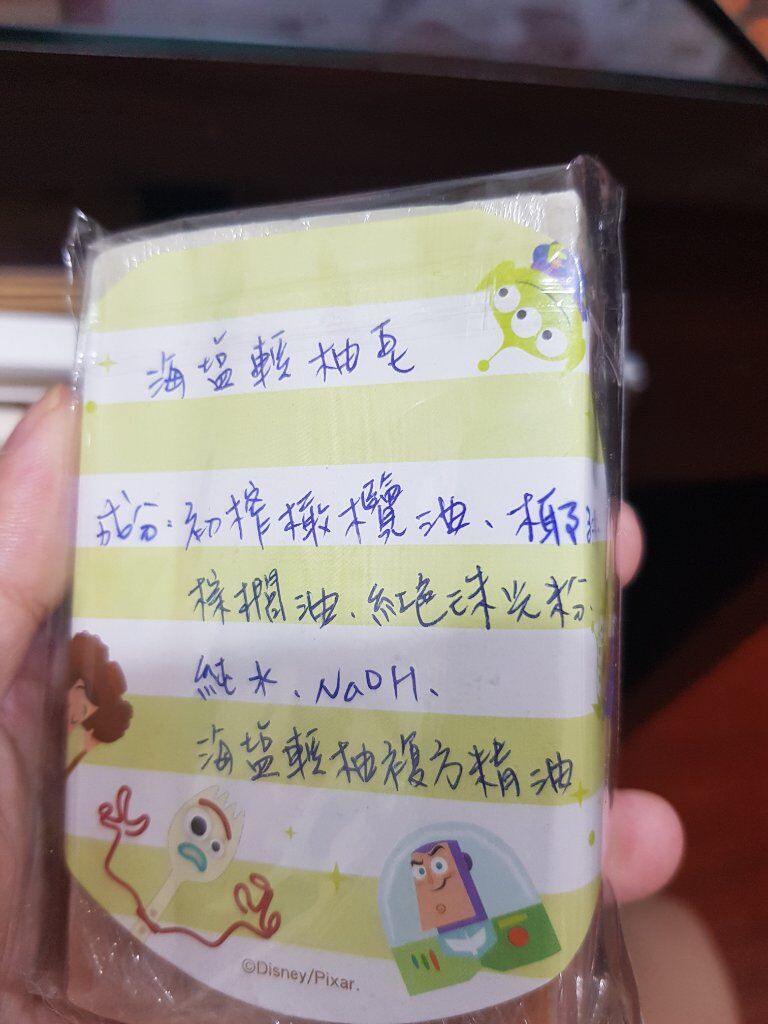 海盐輕柚皂
成分:初榨橄欖油、椰
棕櫚油、紅色珠光粉、
純水、NaOH、
海盐輕柚複方精油
©Disney/Pixar.